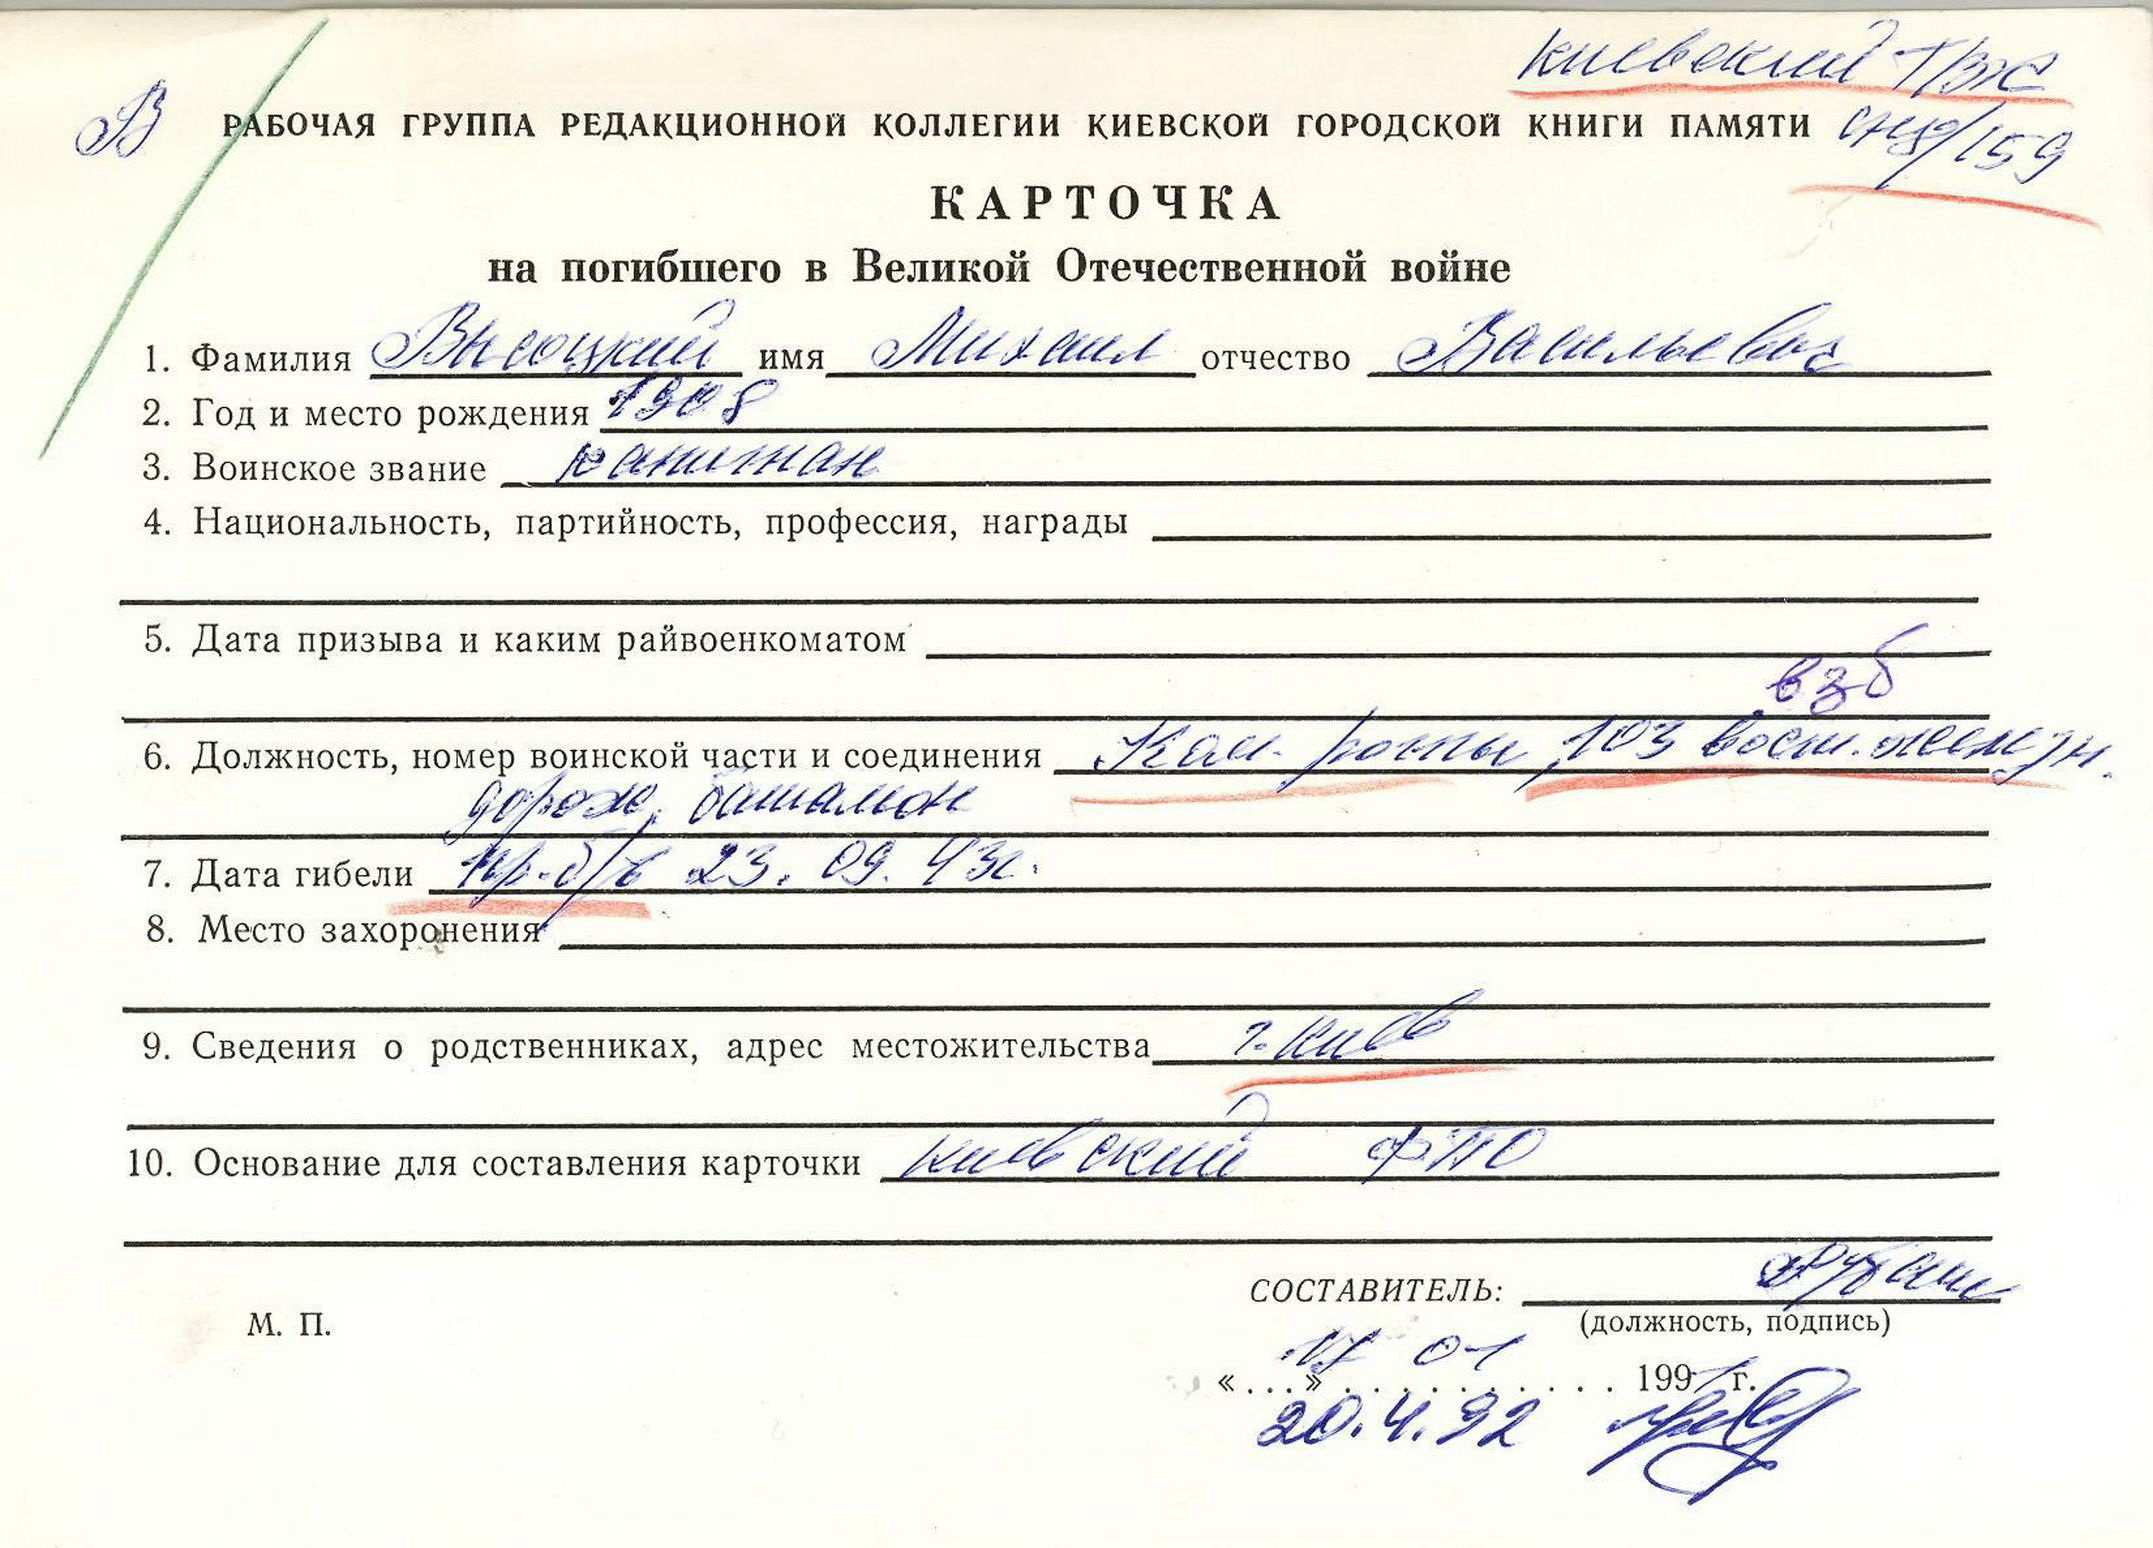 Киевский
В РАБОЧАЯ ГРУППА РЕДАКЦИОННОЙ КОЛЛЕГИИ КИЕВСКОЙ ГОРОДСКОЙ КНИГИ ПАМЯТИ
159
КАРТОЧКА
на погибшего в Великой Отечественной войне
1. Фамилия Высоцкий имя Михаил отчество Васильевич
2. Год и место рождения 1908
3. Воинское звание капитан
4. Национальность, партийность, профессия, награды
5. Дата призыва и каким райвоенкоматом
взб
6. Должность, номер воинской части и соединения Ком. роты, 103 вост. железн.
дорож. батальон
7. Дата гибели пр. б/в 23. 09. 43г.
8. Место захоронения
9. Сведения о родственниках, адрес местожительства г. Киев
10. Основание для составления карточки Киевский ФПО
СОСТАВИТЕЛЬ:
М. П.
(должность, подпись)
«...» 17 01 1991 г.
20.4.92